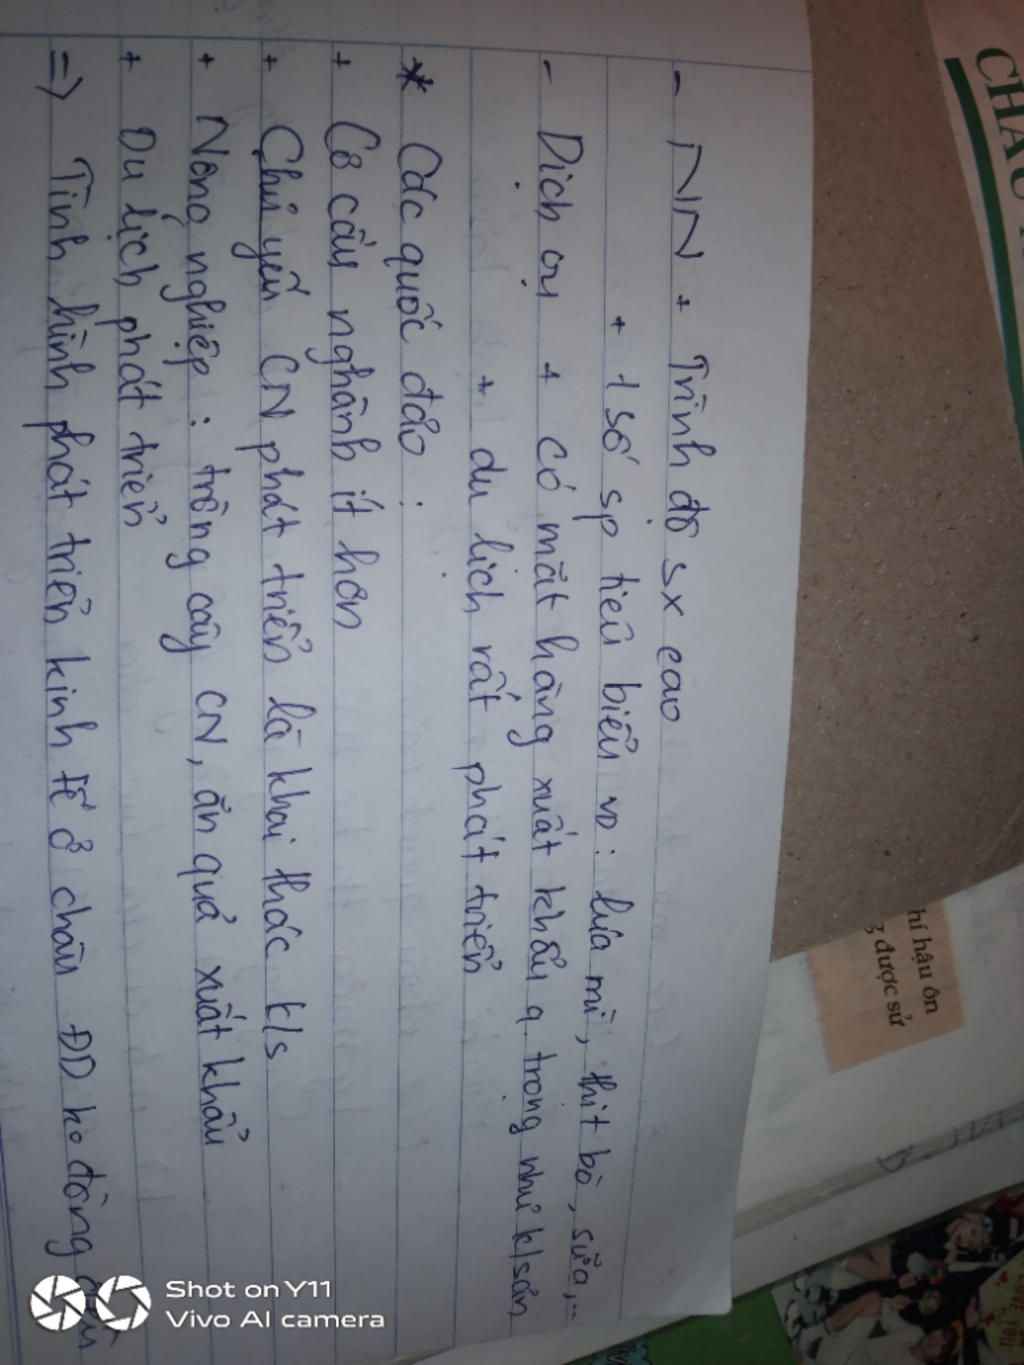 - NN + Trình độ sx cao
+ 1 số sp tiêu biểu vd: lúa mì, thịt bò, sữa,...
- Dịch vụ + có mặt hàng xuất khẩu q trọng như k/sản
+ du lịch rất phát triển
* Các quốc đảo:
+ Cơ cấu nghành ít hơn
+ Chủ yếu CN phát triển là khai thác k/s
+ Nông nghiệp: trồng cây CN, ăn quả xuất khẩu
+ Du lịch phát triển
=> Tình hình phát triển kinh tế ở châu ĐD ko đồng đều
CHÂU
hí hậu ôn
g được sử
Shot on Y11
Vivo AI camera